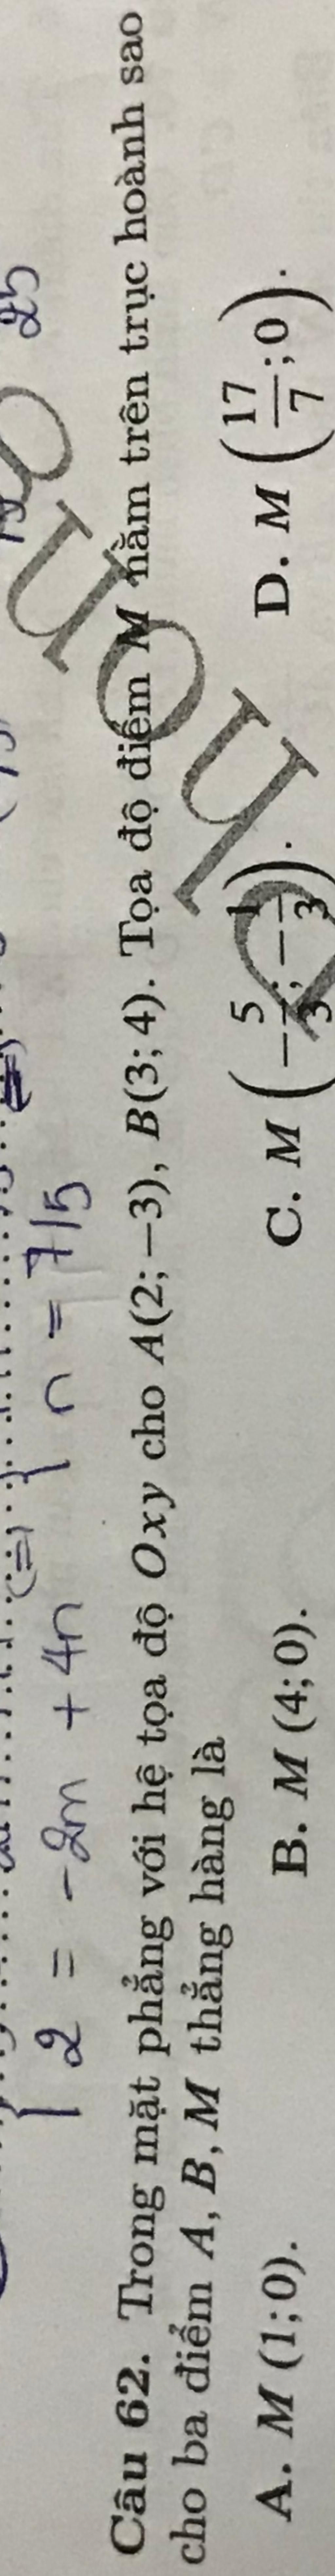 2 = -2m + 4n
n = 7/5
25
Câu 62. Trong mặt phẳng với hệ tọa độ Oxy cho A(2; −3), B(3; 4). Tọa độ điểm M nằm trên trục hoành sao
cho ba điểm A, B, M thẳng hàng là
A. M (1; 0). B. M (4; 0). C. M (−5/3; −1/3). D. M (17/7; 0).